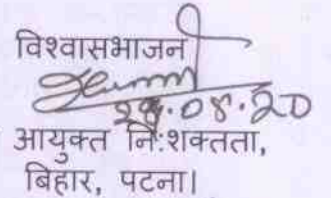 विश्वासभाजन
28.08.20
आयुक्त निःशक्तता,
बिहार, पटना।